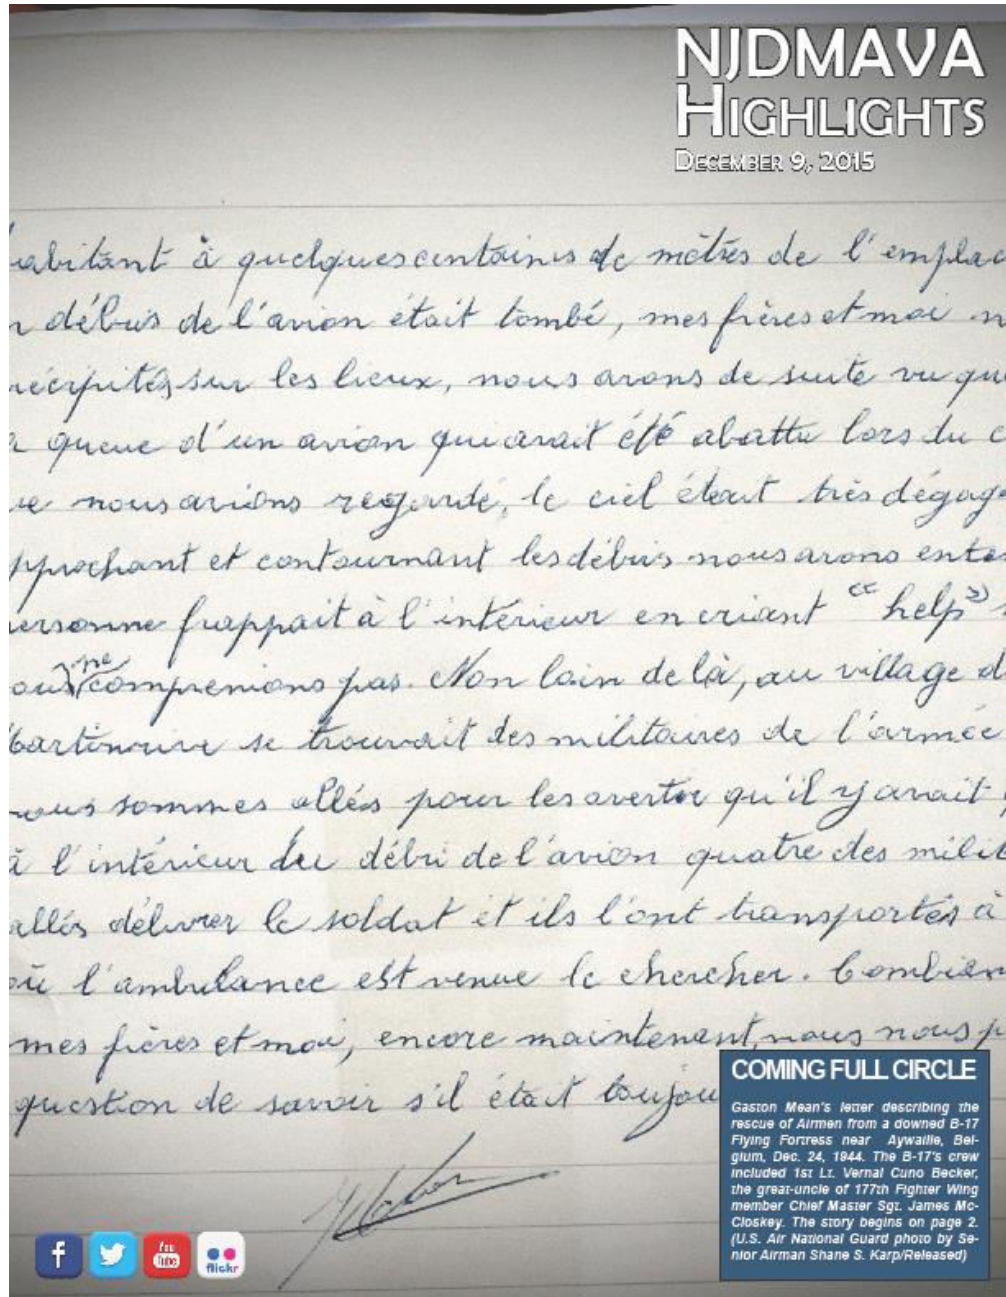 NJDMAVA
HIGHLIGHTS
DECEMBER 9, 2015
abitant à quelques centaines de mètres de l'emplac
débris de l'avion était tombé, mes frères et moi n
récipités sur les lieux, nous avons de suite vu que
queue d'un avion qui avait été abattu lors du c
ue nous avions regardé, le ciel était très dégagé
pprochant et contournant les débris nous avons enten
ersonne frappait à l'intérieur en criant "help"
ous ne comprenions pas. Non loin de là, au village d
se trouvait des militaires de l'armée
nous sommes allés pour les avertir qu'il y avait
à l'intérieur du débri de l'avion quatre des milit
allés délivrer le soldat et ils l'ont transportés à
où l'ambulance est venue le chercher. Combien
mes frères et moi, encore maintenant, nous nous p
question de savoir s'il était toujou
COMING FULL CIRCLE
Gaston Mean's letter describing the
rescue of Airmen from a downed B-17
Flying Fortress near Aywaille, Bel-
gium, Dec. 24, 1944. The B-17's crew
included 1st Lt. Vernal Cuno Becker,
the great-uncle of 177th Fighter Wing
member Chief Master Sgt. James Mc-
Closkey. The story begins on page 2.
(U.S. Air National Guard photo by Se-
nior Airman Shane S. Karp/Released)
f
You
Tube
flickr